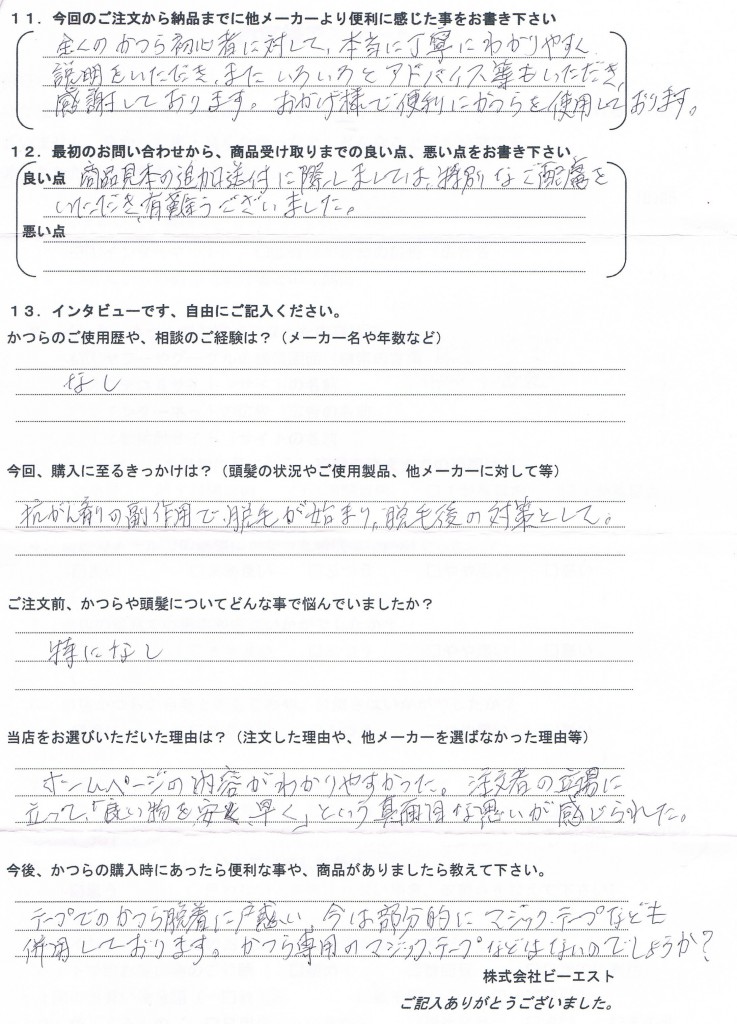 １１．今回のご注文から納品までに他メーカーより便利に感じた事をお書き下さい
全くのかつら初心者に対して、本当に丁寧にわかりやすく
説明をいただき、またいろいろとアドバイス等もいただき、
感謝しております。おかげ様で便利にかつらを使用しております。
１２．最初のお問い合わせから、商品受け取りまでの良い点、悪い点をお書き下さい
良い点 商品見本の追加送付に際しましては、特別なご配慮を
いただき、有難うございました。
悪い点
１３．インタビューです、自由にご記入ください。
かつらのご使用歴や、相談のご経験は？（メーカー名や年数など）
なし
今回、購入に至るきっかけは？（頭髪の状況やご使用製品、他メーカーに対して等）
抗がん剤の副作用で、脱毛が始まり、脱毛後の対策として。
ご注文前、かつらや頭髪についてどんな事で悩んでいましたか？
特になし
当店をお選びいただいた理由は？（注文した理由や、他メーカーを選ばなかった理由等）
ホームページの内容がわかりやすかった。注文者の立場に
立って、「良い物を、安く、早く」という真面目な思いが感じられた。
今後、かつらの購入時にあったら便利な事や、商品がありましたら教えて下さい。
テープでのかつら脱着に戸惑い、今は部分的にマジックテープなども
併用しております。かつら専用のマジックテープなどはないのでしょうか？
株式会社ビーエスト
ご記入ありがとうございました。